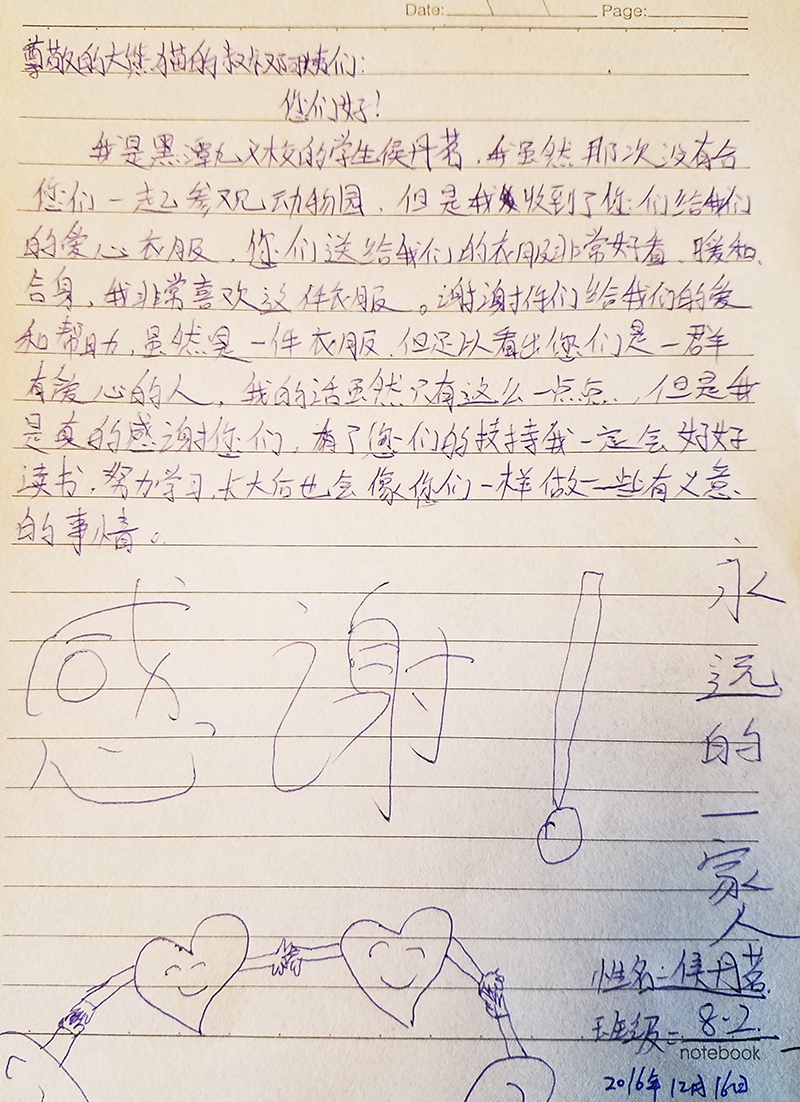 Date: \ \ Page:
尊敬的大熊猫的叔叔阿姨们:
您们好!
我是黑潭九义校的学生侯丹茗,我虽然那次没有合
您们一起参观动物园,但是我收到了您们给我们
的爱心衣服,您们送给我们的衣服非常好看、暖和、
合身,我非常喜欢这件衣服。谢谢你们给我们的爱
和帮助,虽然是一件衣服,但足以看出您们是一群
有爱心的人,我的话虽然只有这么一点点,但是我
是真的感谢您们,有了您们的扶持我一定会好好
读书,努力学习,长大后也会像您们一样做一些有义意
的事情。
感谢!
永远的一家人
性名:侯丹茗
班级:8.2
notebook
2016年12月16日